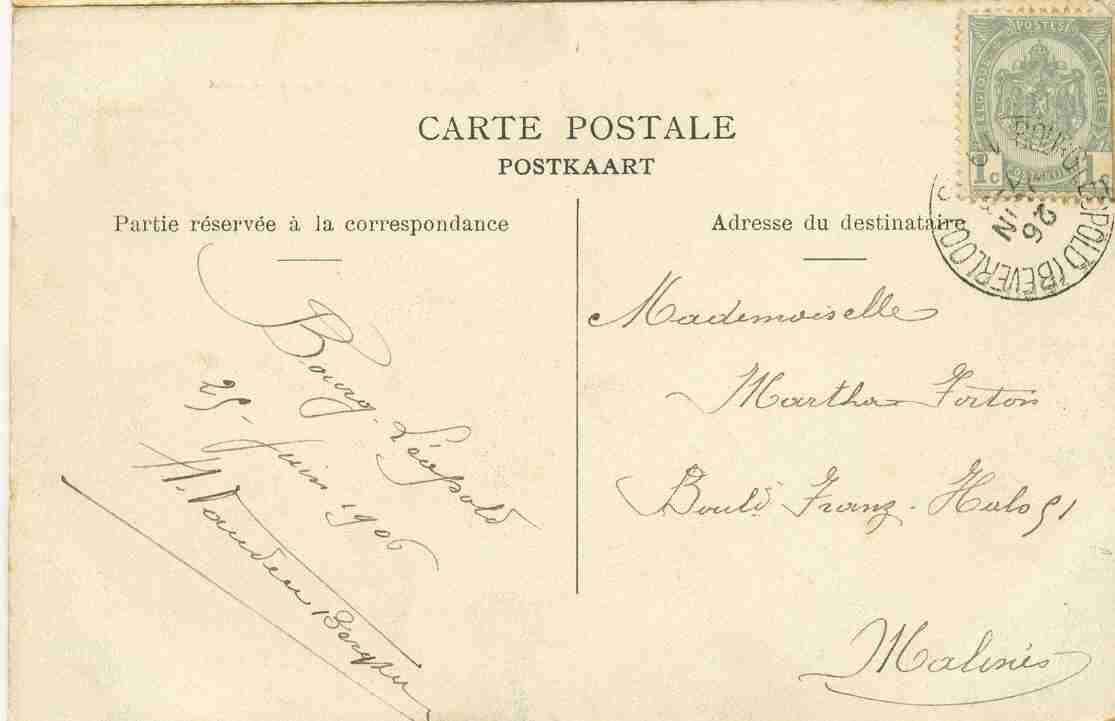 CARTE POSTALE
POSTKAART
Partie réservée à la correspondance
Bourg-Léopold
25 Juin 1906
Vanden Berghe
Adresse du destinataire
Mademoiselle
Martha Torton
Boul^d Franz-Hals 51
Malines
POSTES
BELGIQUE
BELGIË
1c
1c
BOURG-LÉOPOLD (BEVERLOO)
26
JUIN